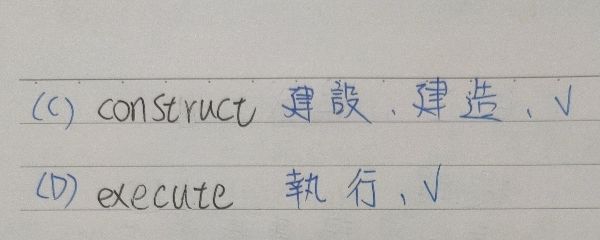 (C) construct 建設、建造、√
(D) execute 執行、√